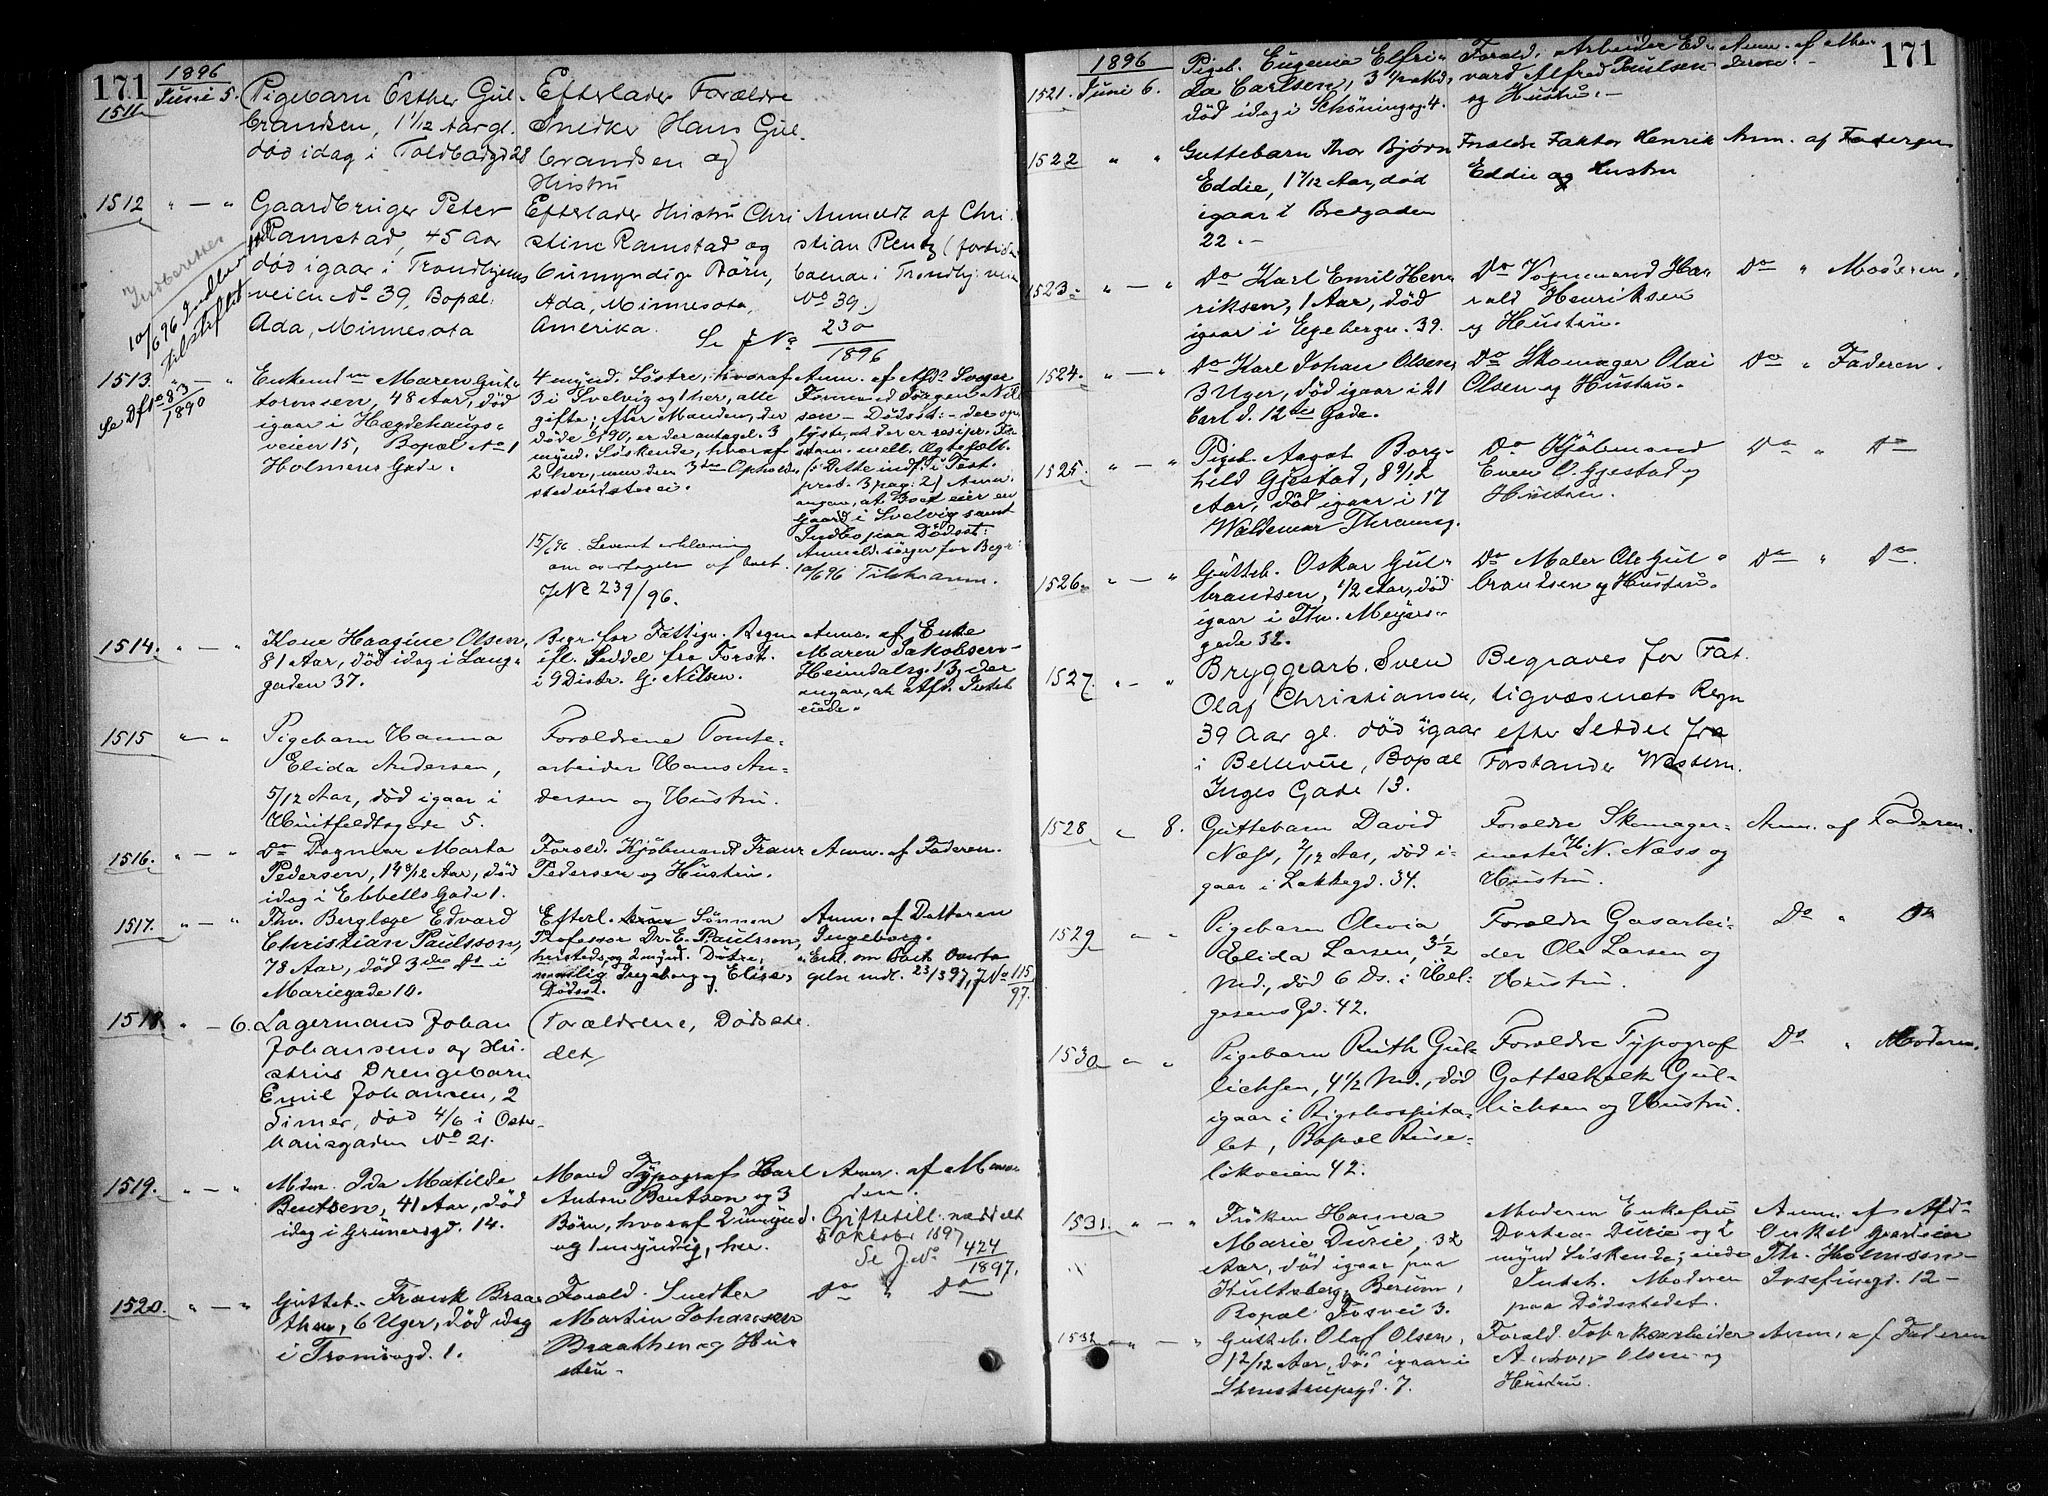 171
1896
1511. Juni 5.
Pigebarn Esther Gul-
brandsen, 1 1/12 Aar gl.
død idag i Toldbodgd 28
Efterlader Forældre
Snedker Hans Gul-
brandsen og
Hustru
1512 " — "
Gaardbruger Peter
Ramstad, 45 Aar
død igaar i Trondhjems
veien No 39, Bopæl:
Ada, Minnesota
Efterlader Hustru Chri
stine Ramstad og
6 umyndige Børn,
Ada, Minnesota,
Amerika.
Anmeldt af Chri-
stian Rentz (
boende i Trondhj. veien
No 39.)
Se JNo 230
1896
Indberettes
10/6 96 Indberettet
Tilskiftet
1513. " — "
Se Dfto 83
1890
Enkemdm Maren Gut-
tormsen, 48 Aar, død
igaar i Hægdehaugs-
veien 15, Bopæl No 1
Holmens Gade.
4 mynd. Søstre, hvoraf
3 i Svelvig og 1 her, alle
gifte; efter Manden, der
døde 90, er der antagel. 3
mynd. Søskende, hvoraf
2 her, men den 3die Opholds-
sted vidstes ei.
15/6 96. Leveret erklæring
om overtagelse af boet.
JNo 239/96.
Anm. af Afds Svoger
Formand Jørgen Nil-
sen — Dødsst: — der op-
lyste, at der er resipr. Te-
stam. mell. Ægtefolk.
(Dette indf. i Test.
prot. 3 pag: 2) Anm.
angav, at Boet eier en
Gaard i Svelvig samt
Indbo paa Dødsst:
Anmeld. sørger for Begr:
10/6 96 Tilskr. anm.
1514. " — "
Kone Haagine Olsen,
81 Aar, død idag i Lang-
gaden 37.
Begr. for Fattigv. Regn
ifl. Seddel fra Forst.
i 9 Distr. G. Nilsen.
Anm. af Enke
Maren Jakobsen
Heimdalsg. 13, der
angav, at Afd. Intet
eiede.
1515 " — "
Pigebarn Hanna
Elida Andersen,
5/12 Aar, død igaar i
Huitfeldtsgade 5.
Forældrene Tomte-
arbeider Hans An-
dersen og Hustru.
1516. " — "
Do Dagmar Marta
Pedersen, 14 8/12 Aar, død
idag i Ebbells Gade 1.
Foræld. Kjøbmand Franz
Pedersen og Hustru.
Anm. af Faderen.
1517. " — "
Fhv. Berglæge Edvard
Christian Paulsson,
78 Aar, død 3die Ds i
Mariegade 10.
Efterl. Sønnen
Professor Dr. E. Paulsson,
hersteds, og 2 mynd. Døtre,
nemlig Ingeborg og Elisa,
Dødsst.
Anm. af Datteren
Ingeborg.
Erkl. om Boets Overta
gelse indl. 23/3 97, JNo 115
97.
1518. " — 6.
Lagermand Johan
Johansens og Hu-
strus Drengebarn
Emil Johansen, 2
Timer, død 4/6 i Oster-
hausgaden No 21.
Forældrene, Dødsste
det
1519. " — "
Mdm. Ida Matilde
Bentsen, 41 Aar, død
idag i Grünersgd. 14.
Mand Typograf Karl
Anton Bentsen og 3
Børn, hvoraf 2 umynd.
og 1 myndig, her.
Anm. af Man
den.
Giftetill. meddelt
5 Oktober 1897
Se J.No. 424
1897.
1520. " — "
Gutteb. Frank Braa-
then, 6 Uger, død idag
i Tromsøgd. 1.
Foræld. Snedker
Martin Johansen
Braathen og Hu-
stru.
Do " Do
171
1896
1521. Juni 6.
Pigeb. Eugenia Elfri-
da Carlsen, 3 1/2 Md.,
død idag i Schøningsg. 4.
Foræld. Arbeider Ed-
vard Alfred Paulsen
og Hustru.
Anm. af Mo-
deren.
1522 " "
Guttebarn Thor Bjørn
Eddie, 1 7/12 Aar, død
igaar i Bredgaden
22. —
Forældre Faktor Henrik
Eddie og Hustru
Anm. af Faderen
1523. " — "
Do Karl Emil Hen-
riksen, 1 Aar, død
igaar i Egebergv. 39.
Do Vognmand Ha-
rald Henriksen
og Hustru.
Do " Moderen.
1524. " — "
Do Karl Johan Olsen,
3 Uger, død igaar i 21
Carl d. 12te Gade.
Do Skomager Olai
Olsen og Hustru.
Do " Faderen.
1525. " — "
Pigeb. Aagot Borg-
hild Gjestad, 8 9/12
Aar, død igaar i 17
Waldemar Thranesg.
Do Kjøbmand
Even O. Gjestad og
Hustru.
Do " Do
1526. " — "
Gutteb. Oskar Gul-
brandsen, 1/2 Aar, død
igaar i Thv. Meyers-
gade 32.
Do Maler Ole Gul-
brandsen og Hustru.
Do " Do.
1527. " — "
Bryggearb. Sven
Olaf Christiansen,
39 Aar gl. død igaar
i Bellevue, Bopæl
Inges Gade 13.
Begraves for Fat.
tigvæsenets Regn
efter Seddel fra
Forstander Western.
1528 " 8.
Guttebarn David
Næss, 2/12 Aar, død i-
gaar i Lakkegd. 34.
Forældre Skomager-
mester H. N. Næss og
Hustru.
Anm. af Faderen.
1529 " "
Pigebarn Olevia
Elida Larsen, 3 1/2
Md., død 6 Ds. i Hel-
gesens Gd. 42.
Forældre Gasarbei-
der Ole Larsen og
Hustru.
Do " Do
1530 " "
Pigebarn Ruth Gul-
lichsen, 4 1/2 Md., død
igaar i Rigshospita-
let, Bopæl Ruse-
løkveien 42.
Forældre Typograf
Gottschalk Gul-
lichsen og Hustru.
Do " Moderen.
1531 " — "
Frøken Hanna
Marie Durie, 32
Aar, død igaar paa
Hultsberg, Berum,
Bopæl Fosvei 3.
Moderen Enkefru
Dortea Durie og 2
mynd Søskende; eiede
Intet. Moderen
paa Dødsstedet.
Anm. af Afds
Onkel Gaardeier
Th. Holmsen
Josefinegd. 12 —
1532 " — "
Gutteb. Olaf Olsen,
12/12 Aar, død igaar i
Stenstrupsgd. 7.
Foræld. Fabrikarbeider
Andreas Olsen og
Hustru.
Anm. af Faderen